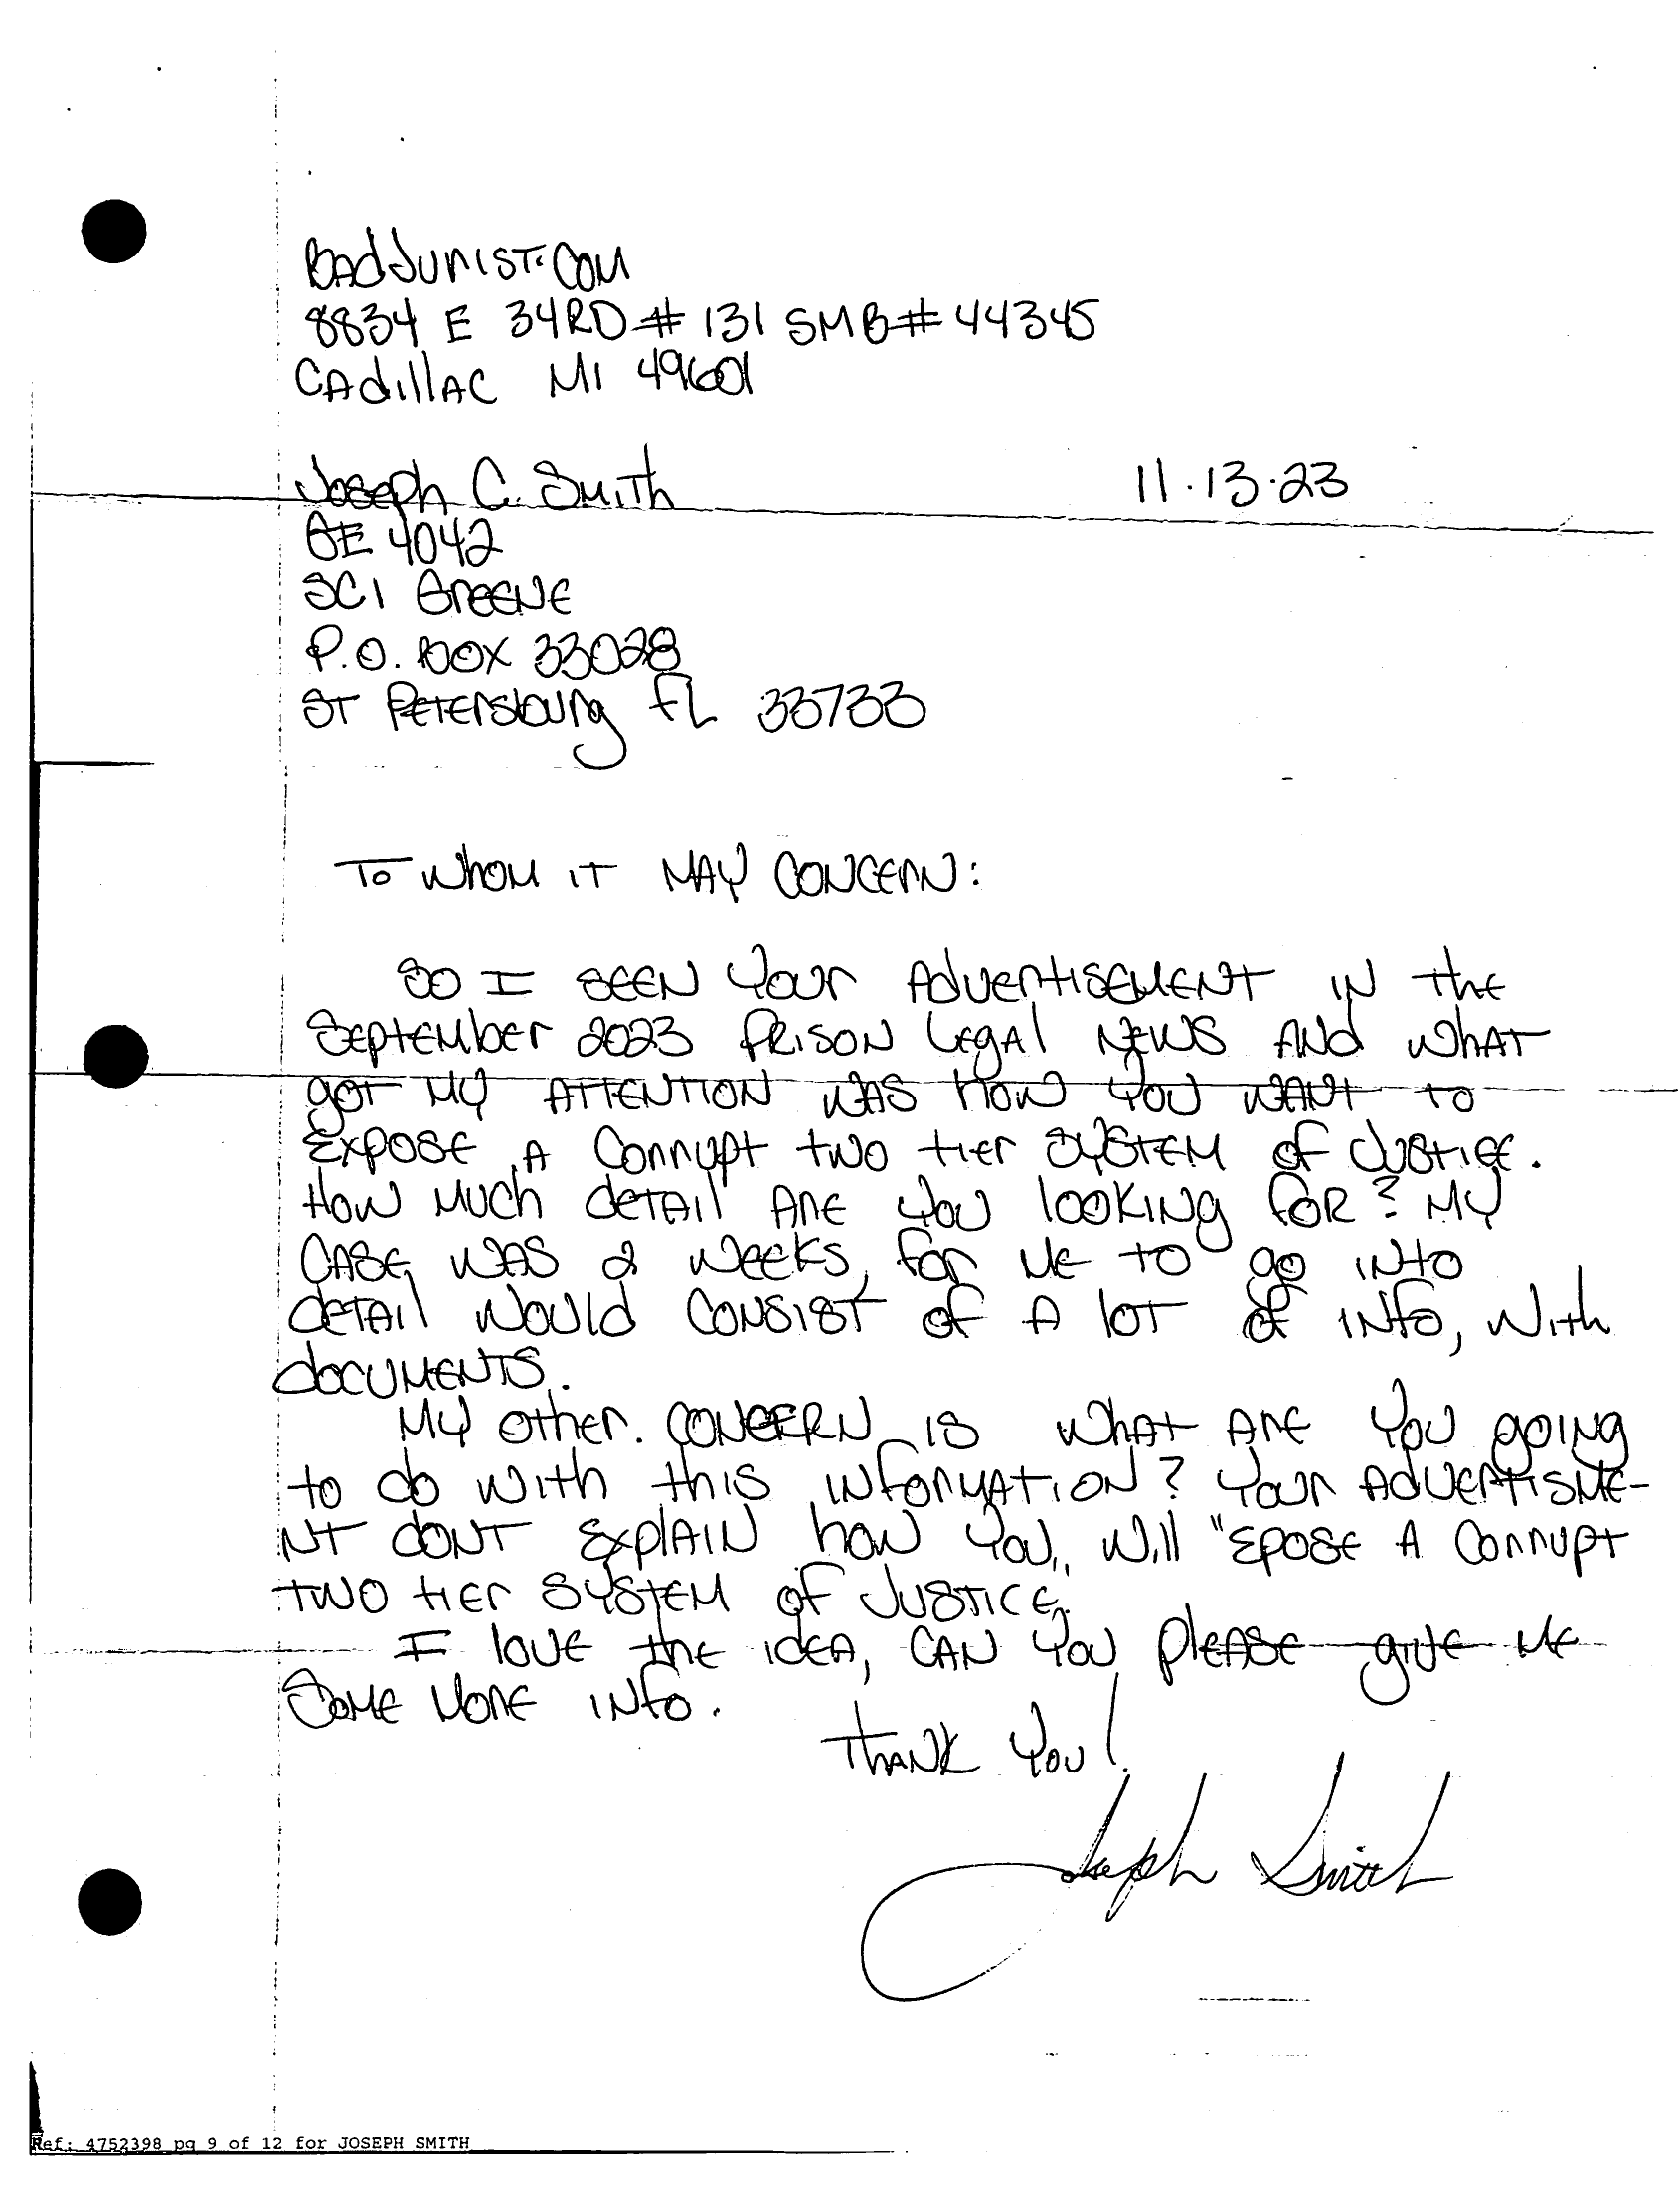 BadJurist.Com
8834 E 34RD # 131 SMB# 44345
CAdillAC MI 49601
Joseph C. Smith
11.13.23
QE 4042
SCI GREENE
P.O. BOX 33028
ST PETErsburg FL 33733
To WhOM IT MAY CONCErN:
SO I SEEN Your AdvertISEMENT IN the
SEptEMber 2023 PRISON LegAl NEWS ANd WhAT
got MY ATTENTION WAS How YOU WANT to
ExpOSE A Corrupt two tier SYSTEM of JUStICE.
How MUCh dETAIl ArE You lOOKINg FOR? MY
CASE WAS 2 WeekS, for ME TO go INtO
dETAIl WOUld CONSIST of A lOT of INfO, With
dOCUMENTS.
MY OthEr. CONCERN IS WhAt ArE YOU gOINg
to do WIth thIS INfOrMATION? YOur AdvErtISME-
NT dONT ExplAIN how YOU, WIll "EPOSE A COrrupt
TWO tIEr SYSTEM of JUSTICE.
I lOVE thE IdEA, CAN YOU PlEASE gIVE ME
SOME MOrE INfO.
ThANK YOU!
Joseph Smith
Ref: 4752398 pg 9 of 12 for JOSEPH SMITH